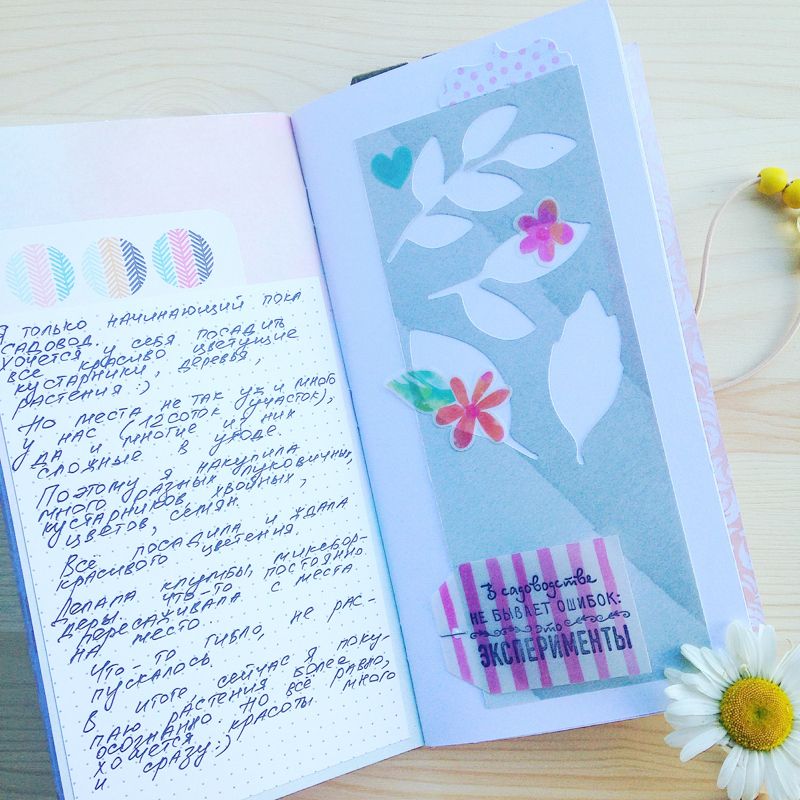 Я только начинающий пока
садовод.
Хочется у себя посадить
все красиво цветущие
кустарники, деревья,
растения :)
Но места не так уж и много
у нас (12 соток участок),
да и многие из них
сложные в уходе.
Поэтому я накупила
много разных луковичных,
кустарников хвойных,
цветов, семян.
Всё посадила и ждала
красивого цветения.
Делала клумбы, миксбор-
деры, что-то постоянно
пересаживала с места
на место...
Что-то гибло, не рас-
пускалось.
В итоге сейчас я поку-
паю растения более
осознанно. Но всё равно,
хочется красоты много
и сразу :)
В садоводстве
НЕ БЫВАЕТ ОШИБОК:
это
ЭКСПЕРИМЕНТЫ